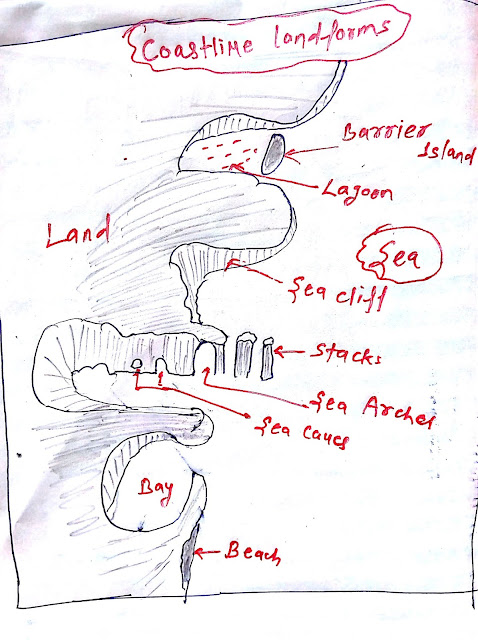 Coastline landforms
Barrier
Island
Lagoon
Land
Sea
Sea cliff
Stacks
Sea Arches
Sea Caves
Bay
Beach